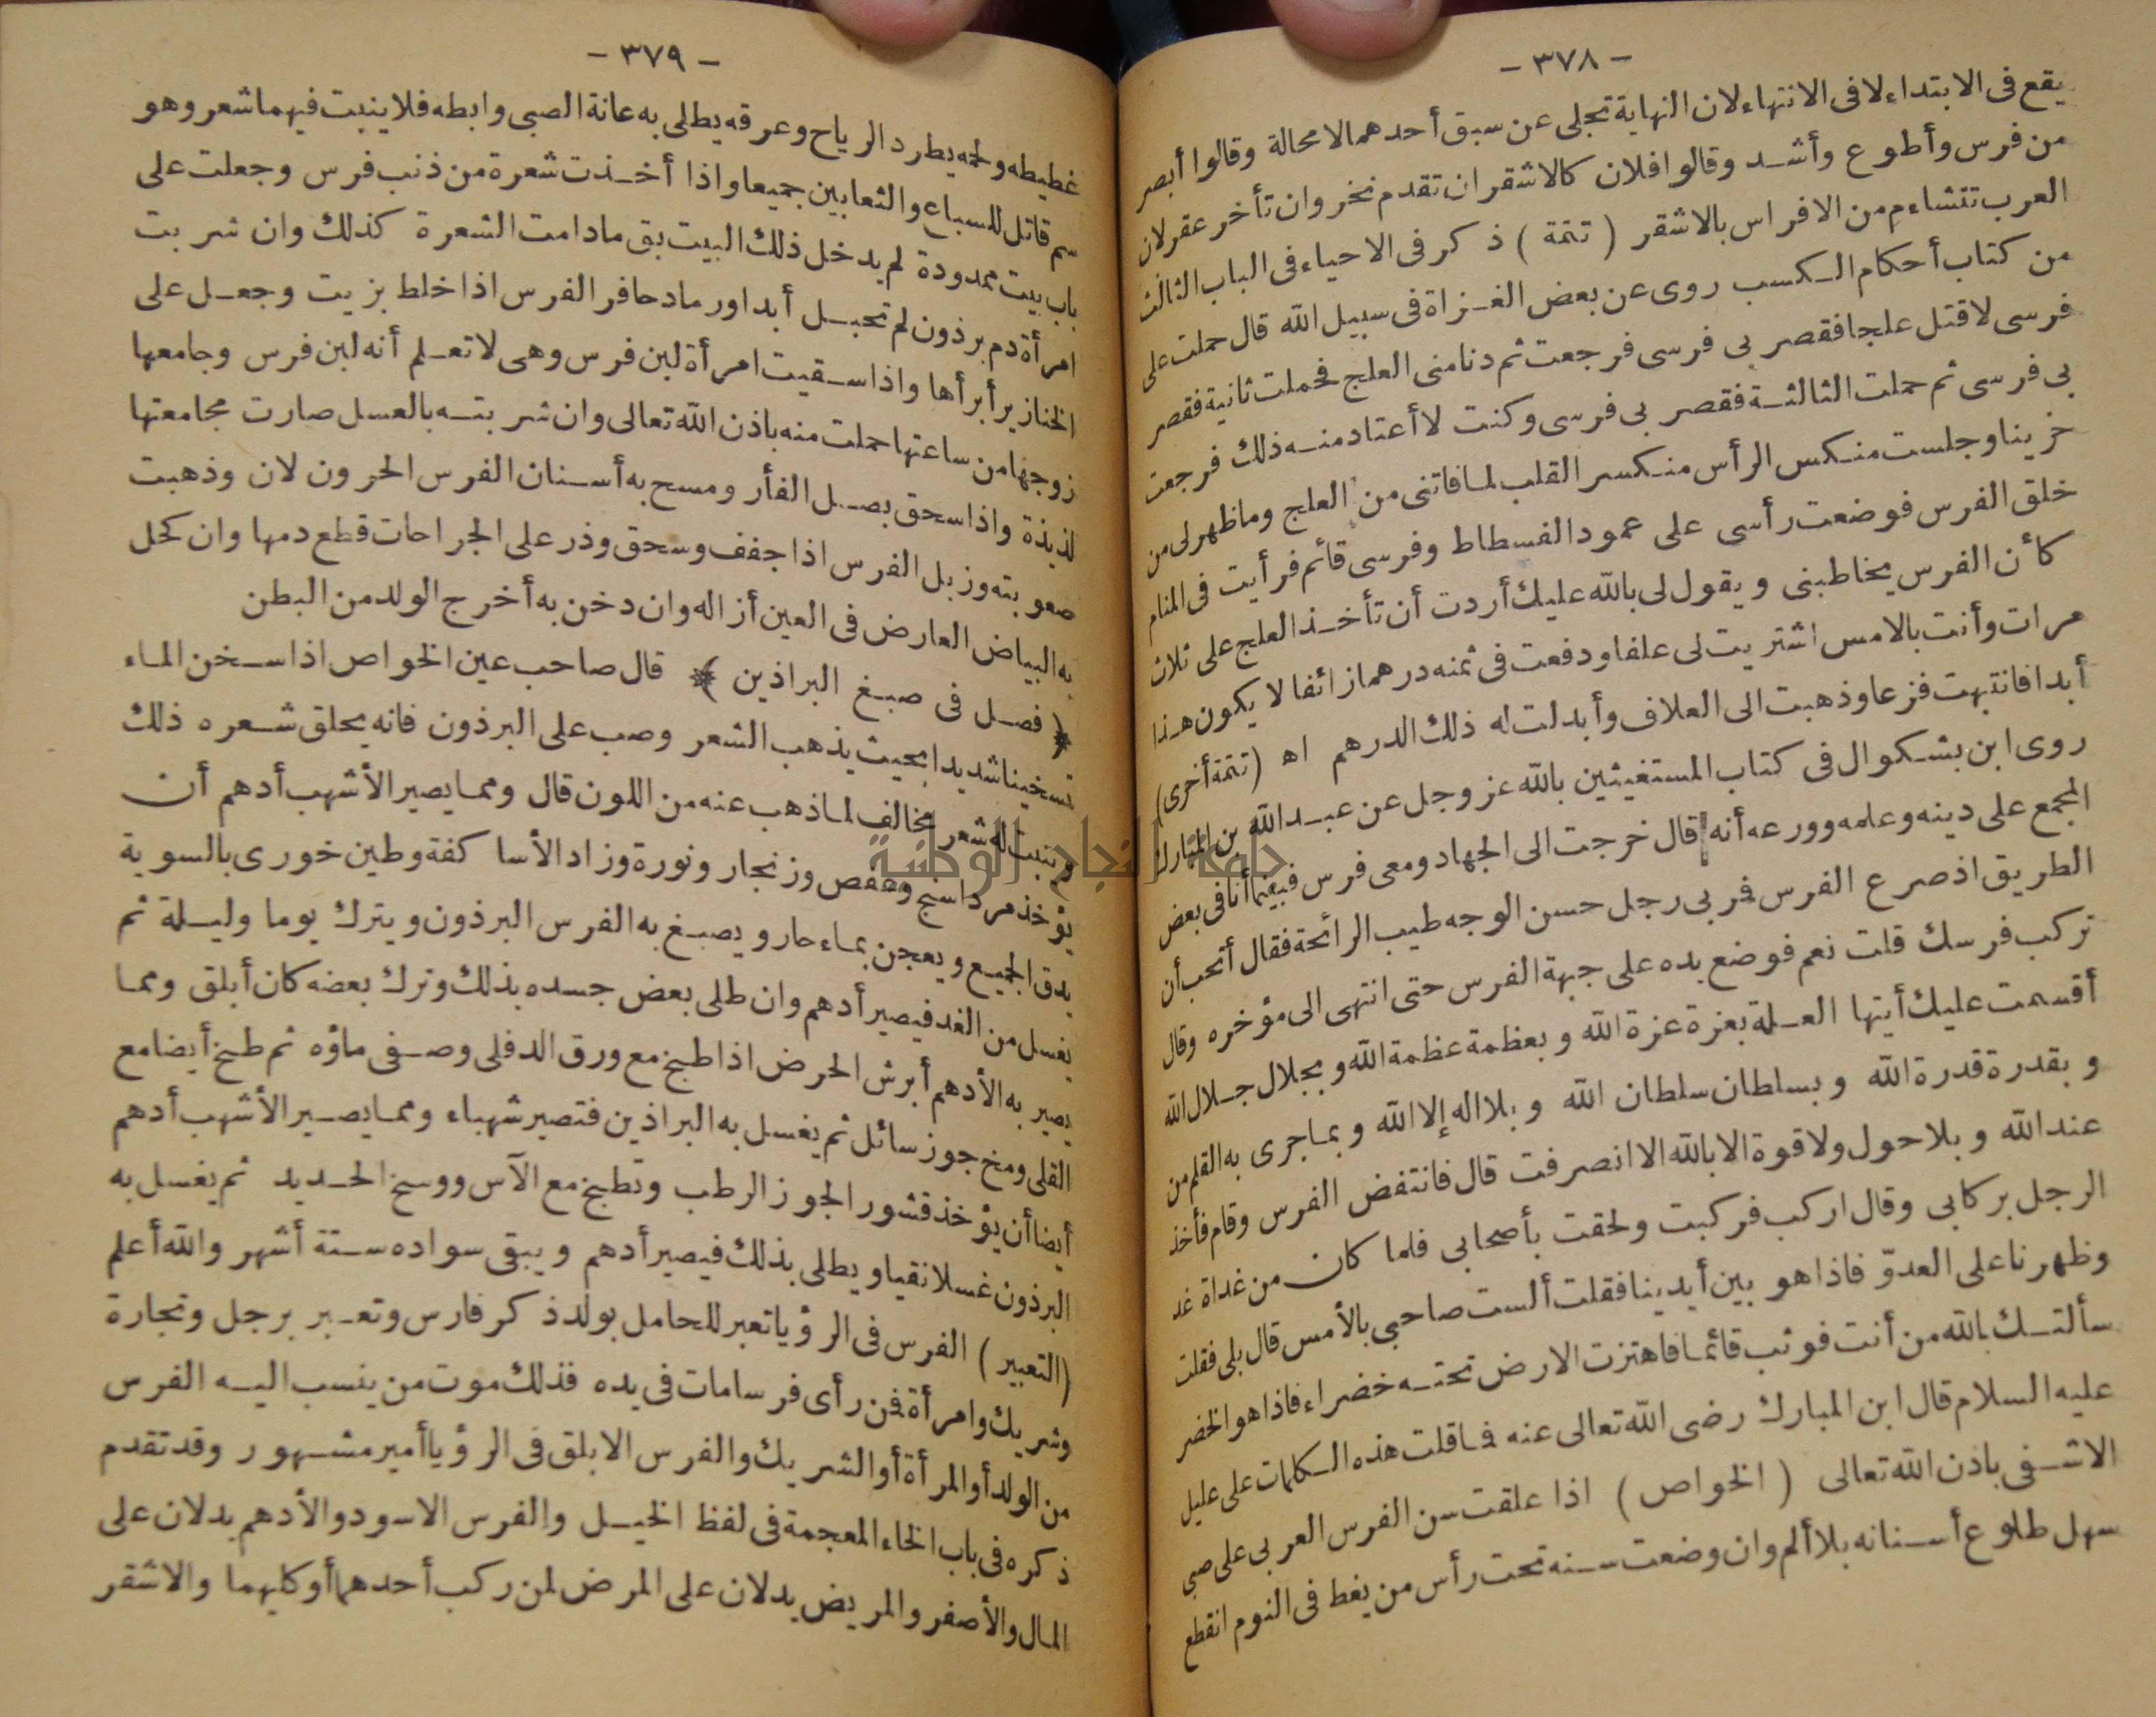 - ٣٧٨ -
يقع فى الابتداء لا فى الانتهاء لان النهاية تجلى عن سبق أحدهما لا محالة وقالوا أبصر
من فرس وأطوع وأشد وقالوا فلان كالاشقر ان تقدم نحر وان تأخر عقر لان
العرب تتشاءم من الافراس بالاشقر ( تتمة ) ذكر فى الاحياء فى الباب الثالث
من كتاب أحكام الكسب روى عن بعض الغزاة فى سبيل الله قال حملت على
فرسى لاقتل علجا فقصر بى فرسى فرجعت ثم دنا منى العلج فحملت ثانية فقصر
بى فرسى ثم حملت الثالثة فقصر بى فرسى وكنت لا أعتاد منه ذلك فرجعت
حزينا وجلست منكس الرأس منكسر القلب لما فاتنى من العلج وما ظهر لى من
خلق الفرس فوضعت رأسى على عمود الفسطاط وفرسى قائم فرأيت فى المنام
كأن الفرس يخاطبنى ويقول لى بالله عليك أردت أن تأخذ العلج على ثلاث
مرات وأنت بالامس اشتريت لى علفا ودفعت فى ثمنه درهما زائفا لا يكون هذا
أبدا فانتبهت فزعا وذهبت الى العلاف وأبدلت له ذلك الدرهم اه ( تتمة أخرى )
روى ابن بشكوال فى كتاب المستغيثين بالله عز وجل عن عبد الله بن المبارك
المجمع على دينه وعلمه وورعه أنه قال خرجت الى الجهاد ومعى فرس فبينما أنا فى بعض
الطريق اذ صرع الفرس فمر بى رجل حسن الوجه طيب الرائحة فقال أتحب أن
تركب فرسك قلت نعم فوضع يده على جبهة الفرس حتى انتهى الى مؤخره وقال
أقسمت عليك أيتها العلة بعزة عزة الله وبعظمة عظمة الله وبجلال جلال الله
وبقدرة قدرة الله وبسلطان سلطان الله وبلا اله إلا الله وبما جرى به القلم من
عند الله وبلا حول ولا قوة الا بالله الا انصرفت قال فانتفض الفرس وقام فأخذ
الرجل بركابى وقال اركب فركبت ولحقت بأصحابى فلما كان من غداة غد
وظهرنا على العدوّ فاذا هو بين أيدينا فقلت ألست صاحبي بالأمس قال بلى فقلت
سألتك بالله من أنت فوثب قائما فاهتزت الارض تحته خضراء فاذا هو الخضر
عليه السلام قال ابن المبارك رضى الله تعالى عنه فما قلت هذه الكلمات على عليل
الا شفى باذن الله تعالى ( الخواص ) اذا علقت سن الفرس العربى على صبى
سهل طلوع أسنانه بلا ألم وان وضعت سنه تحت رأس من يغط فى النوم انقطع
- ٣٧٩ -
غطيطه ولحمه يطرد الرياح وعرقه يطلى به عانة الصبى وابطه فلا ينبت فيهما شعر وهو
سم قاتل للسباع والثعابين جميعا واذا أخذت شعرة من ذنب فرس وجعلت على
باب بيت ممدودة لم يدخل ذلك البيت بق مادامت الشعرة كذلك وان شربت
امرأة دم برذون لم تحبل أبدا ورماد حافر الفرس اذا خلط بزيت وجعل على
الخنازير أبرأها واذا سقيت امرأة لبن فرس وهى لا تعلم أنه لبن فرس وجامعها
زوجها من ساعتها حملت منه باذن الله تعالى وان شربته بالعسل صارت مجامعتها
لذيذة واذا سحق بصل الفأر ومسح به أسنان الفرس الحرون لان وذهبت
صعوبته وزبل الفرس اذا جفف وسحق وذر على الجراحات قطع دمها وان كحل
به البياض العارض فى العين أزاله وان دخن به أخرج الولد من البطن
﴿ فصل فى صبغ البراذين ﴾ قال صاحب عين الخواص اذا سخن الماء
تسخينا شديدا بحيث يذهب الشعر وصب على البرذون فانه يحلق شعره ذلك
وينبت له شعر مخالف لما ذهب عنه من اللون قال ومما يصير الأشهب أدهم أن
يؤخذ مرداسنج وعفص وزنجار ونورة وزاد الأساكفة وطين خورى بالسوية
يدق الجميع ويعجن بماء حار ويصبغ به الفرس البرذون ويترك يوما وليلة ثم
يغسل من الغد فيصير أدهم وان طلى بعض جسده بذلك وترك بعضه كان أبلق ومما
يصير به الأدهم أبرش الحرض اذا طبخ مع ورق الدفلى وصفى ماؤه ثم طبخ أيضا مع
القلى ومخ جوز سائل ثم يغسل به البراذين فتصير شهباء ومما يصير الأشهب أدهم
أيضا أن يؤخذ قشور الجوز الرطب وتطبخ مع الآس ووسخ الحديد ثم يغسل به
البرذون غسلا نقيا ويطلى بذلك فيصير أدهم ويبقى سواده ستة أشهر والله أعلم
( التعبير ) الفرس فى الرؤيا تعبر للحامل بولد ذكر فارس وتعبر برجل وتجارة
وشريك وامرأة فمن رأى فرسا مات فى يده فذلك موت من ينسب اليه الفرس
من الولد أو المرأة أو الشريك والفرس الابلق فى الرؤيا أمير مشهور وقد تقدم
ذكره فى باب الخاء المعجمة فى لفظ الخيل والفرس الاسود والأدهم يدلان على
المال والأصفر والمريض يدلان على المرض لمن ركب أحدهما أو كليهما والاشقر
جامعة النجاح الوطنية